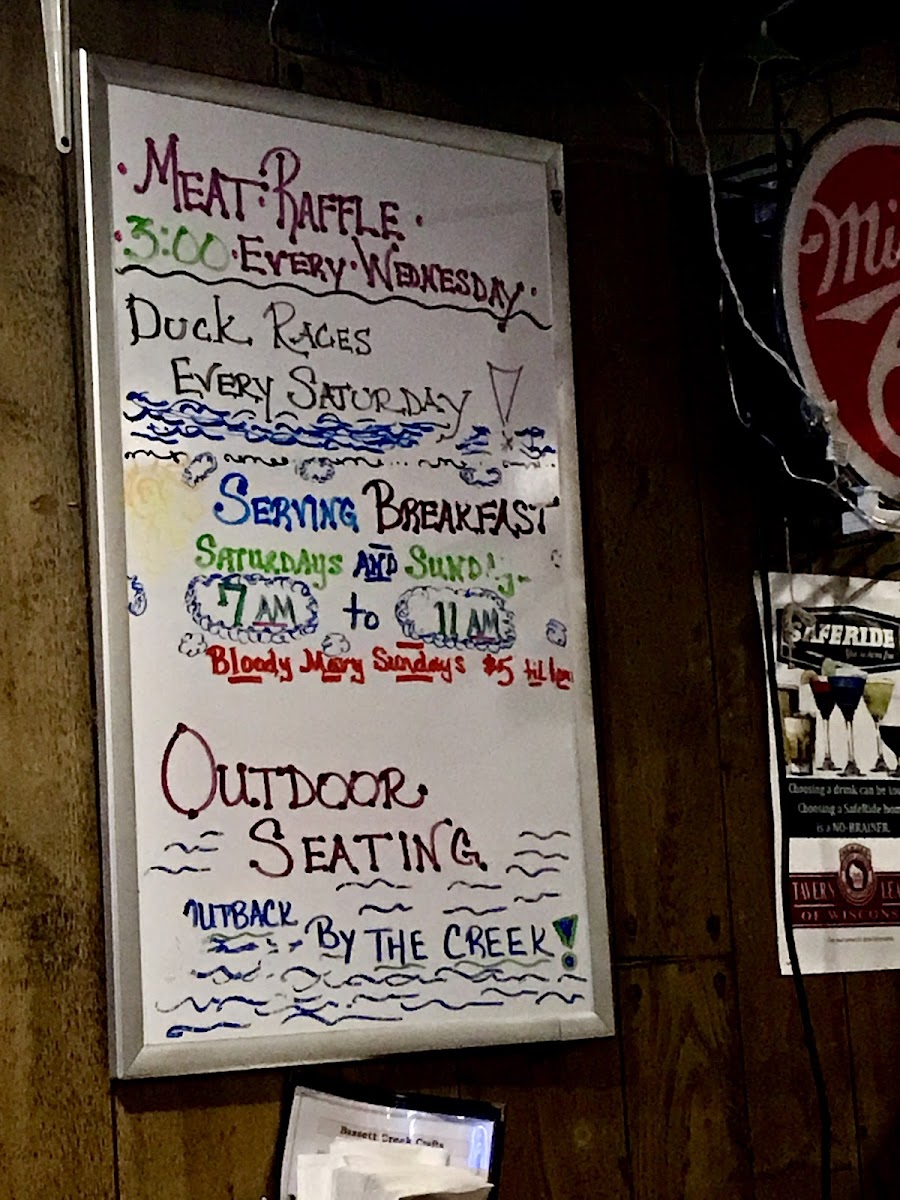 • MEAT • RAFFLE •
• 3:00 • EVERY • WEDNESDAY •
DUCK RACES
EVERY SATURDAY!
SERVING BREAKFAST
SATURDAYS AND
7 AM to 11 AM
Bloody Mary Sundays $5 til
OUTDOOR
SEATING
BY THE CREEK!
Mi
SAFERIDE
Choosing a drink can be
Choosing a SafeRide
is a NO-BRAINER.
TAVERN LEA
OF WISCONS
Bassett Creek Crafts